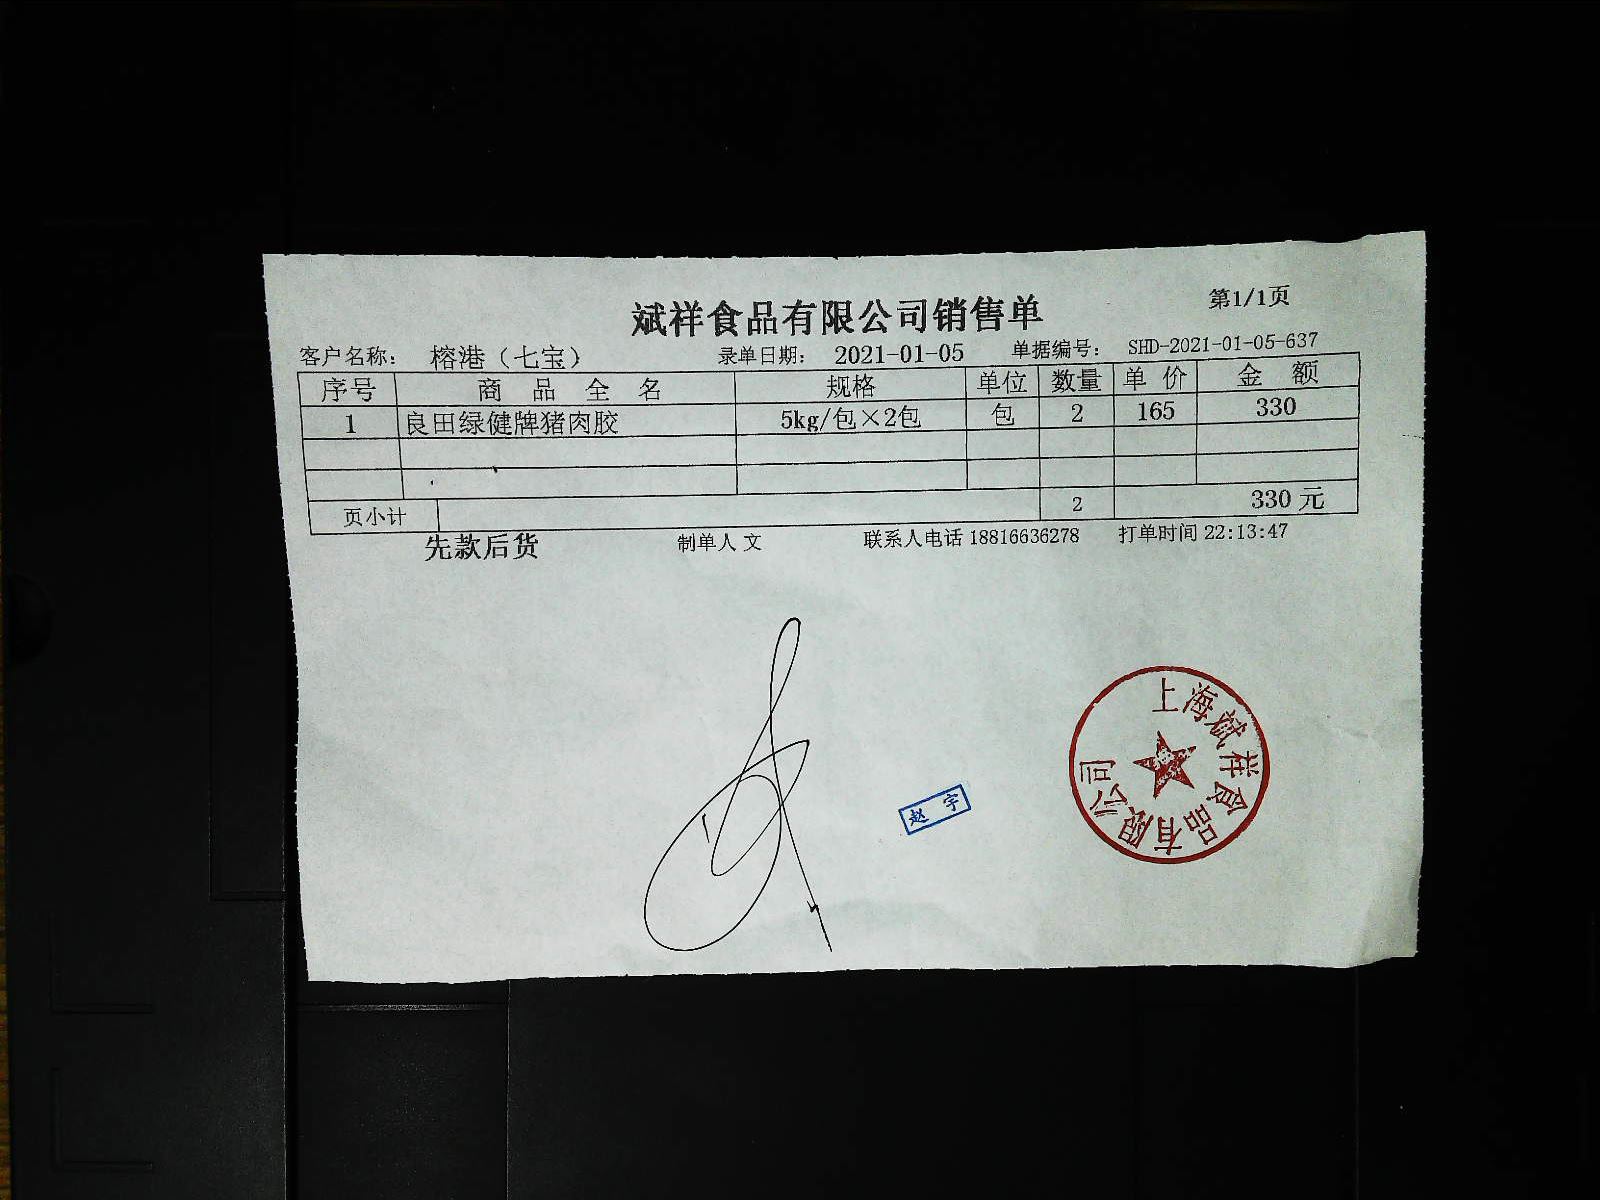 斌祥食品有限公司销售单
第1/1页
客户名称： 榕港（七宝） 录单日期： 2021-01-05 单据编号： SHD-2021-01-05-637
序号 商品全名 规格 单位 数量 单价 金额
1 良田绿健牌猪肉胶 5kg/包×2包 包 2 165 330
页小计 2 330元
先款后货 制单人 文 联系人电话 18816636278 打单时间 22:13:47
赵宇
上海斌祥食品有限公司